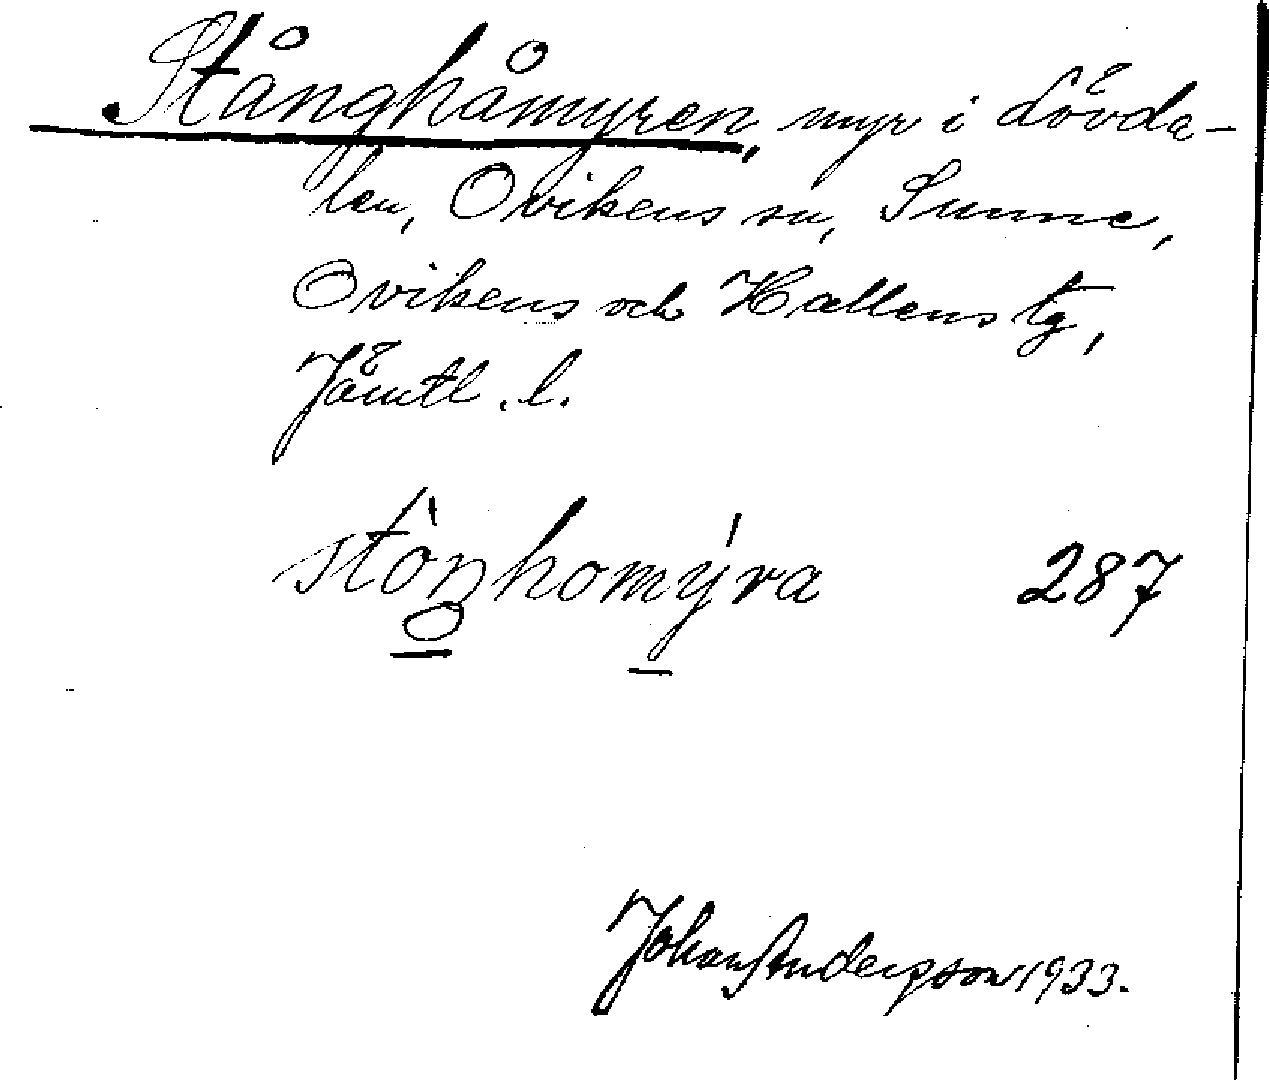 Stånghåmyren, myr i Lövda-
len, Ovikens sn, Sunne,
Ovikens och Hallens tg,
Jämtl. l.
stòŋhomýra 287
Johan Anderpson 1933.